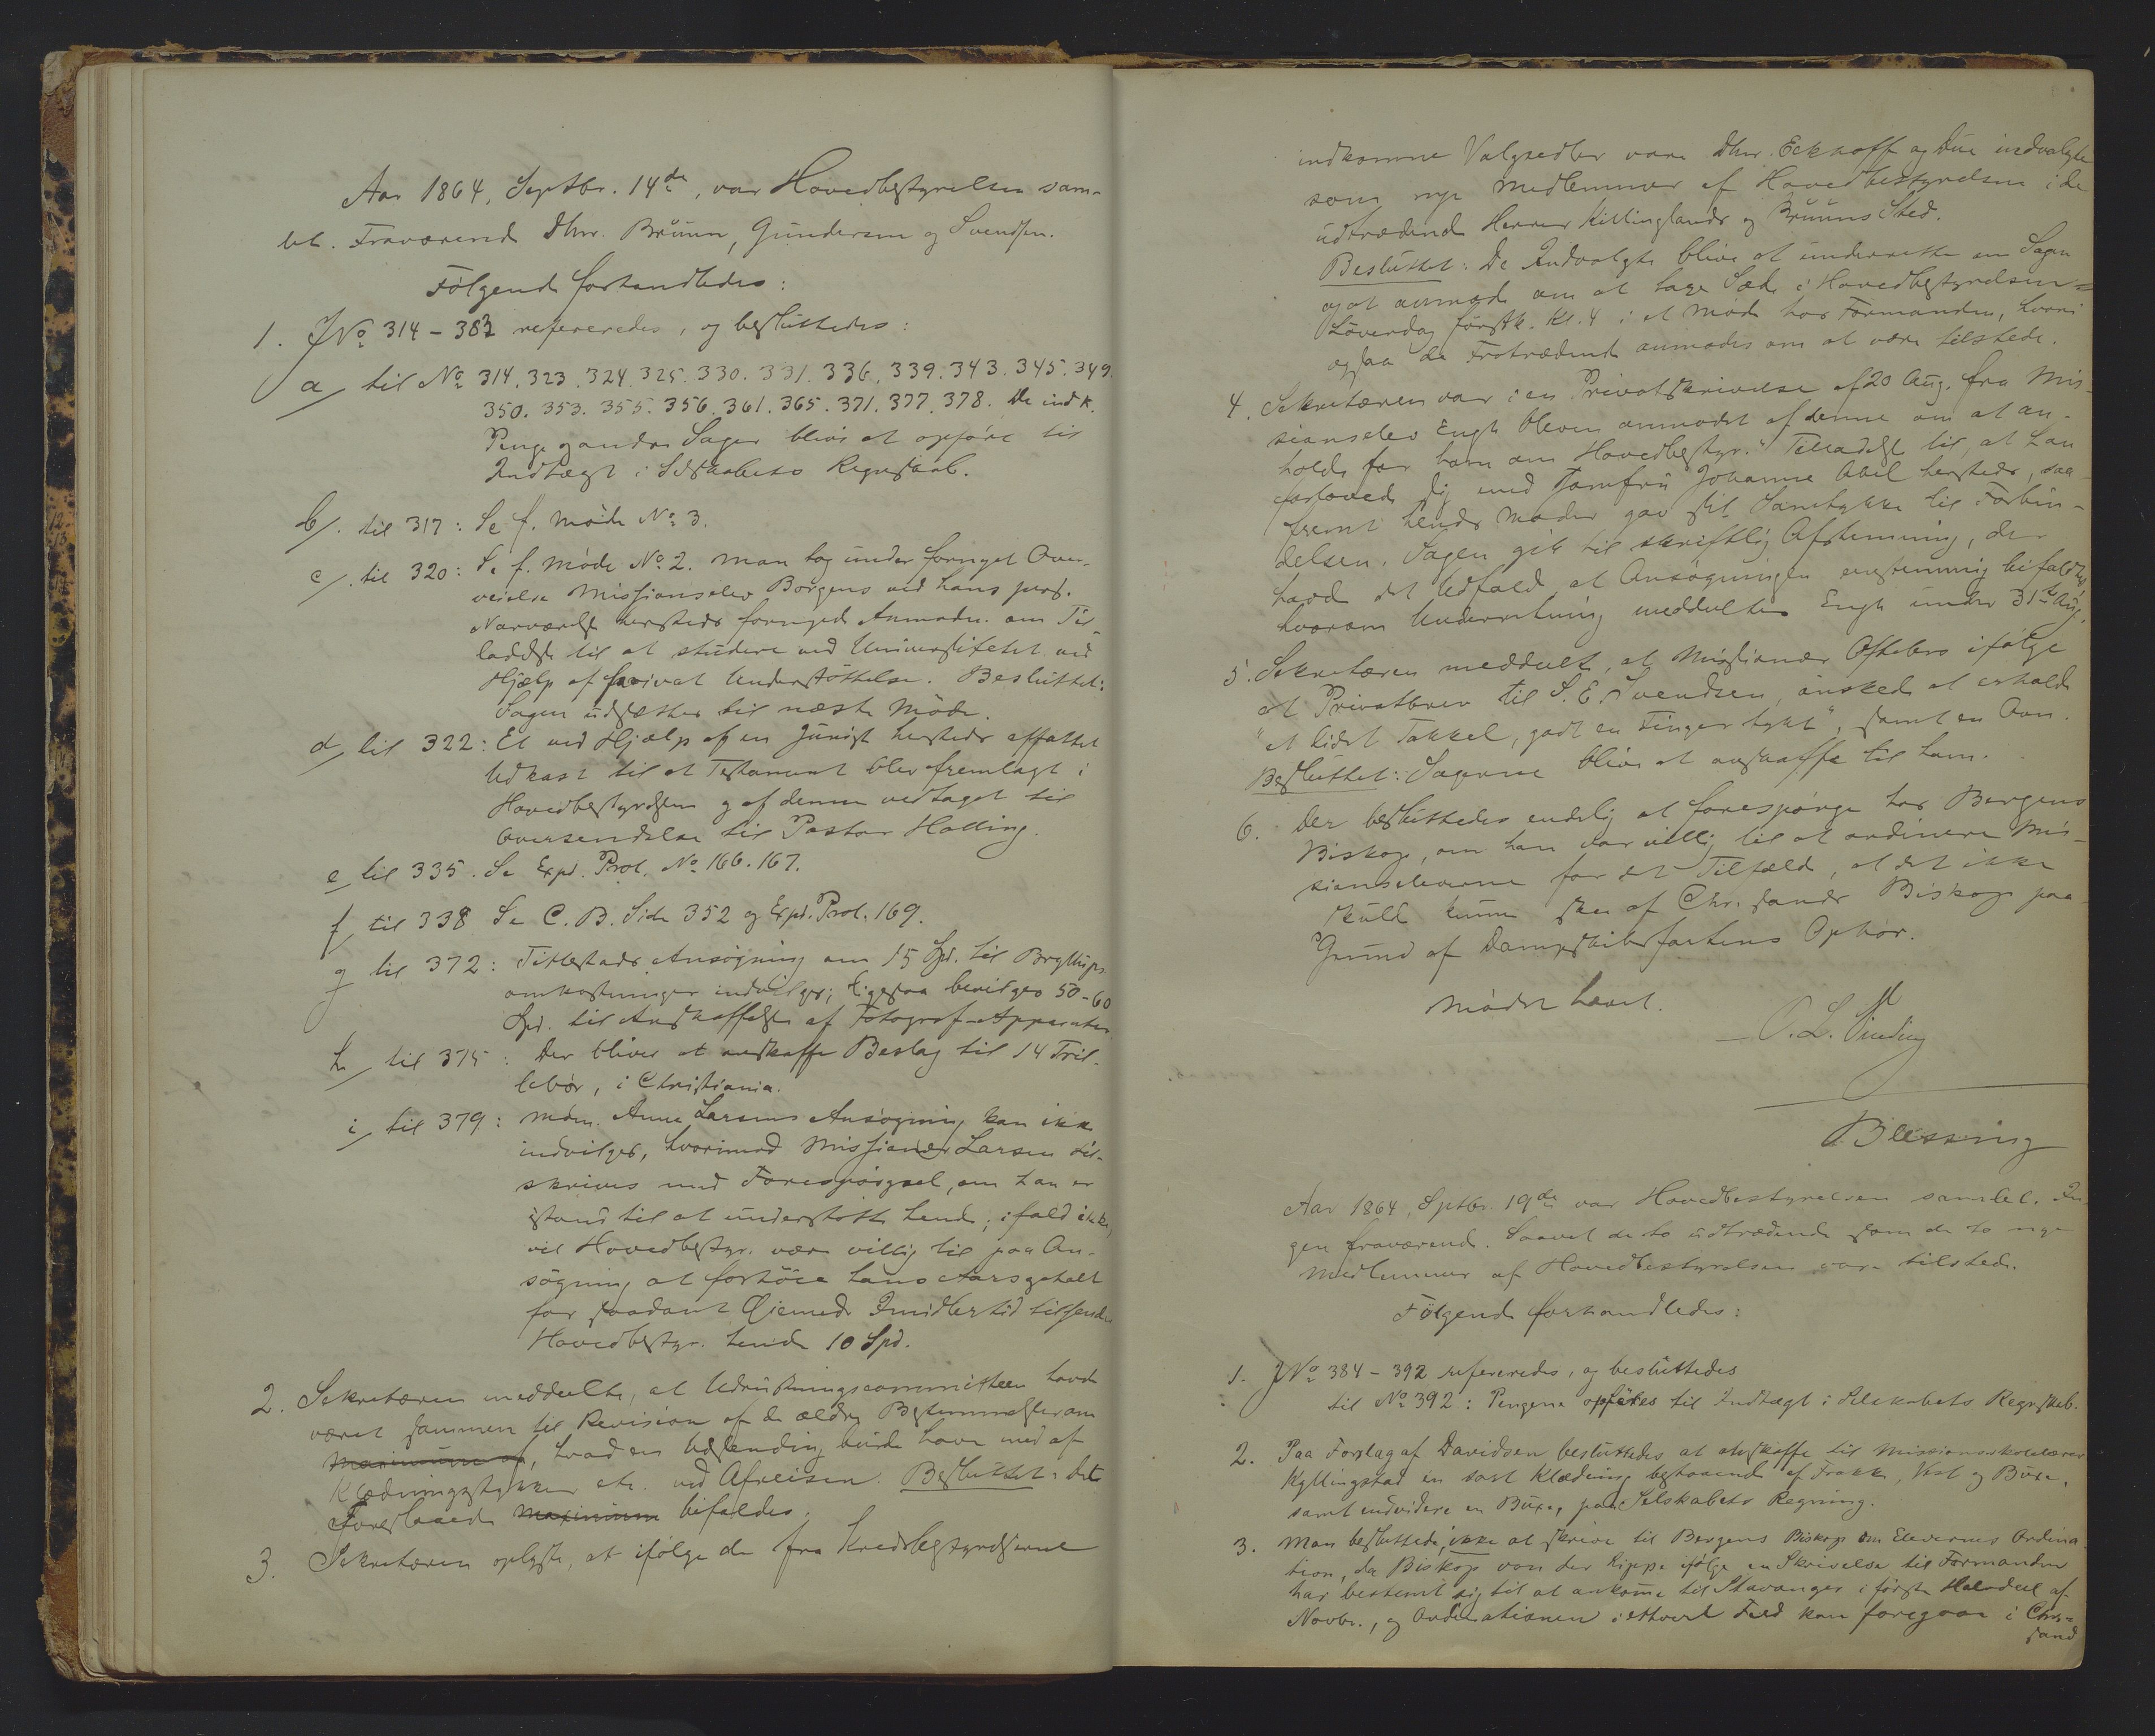 Aar 1864, Septbr. 14de, var Hovedbestyrelsen sam-
let. Fraværende Dhrr. Bruun, Gundersen og Svendsen.
Følgende forhandledes:
1. JNo 314 – 383 refereredes, og besluttedes:
a/ til No 314. 323. 324. 325. 330. 331. 336. 339. 343. 345. 349.
350. 353. 355. 356. 361. 365. 371. 377. 378. De indk.
Penge og andre Sager blive at opføre til
Indtægt i Selskabets Regnskab.
b/. til 317: Se f. Møde No 3.
c/. til 320: Se f. Møde No 2. Man tog under fornyet Over-
veielse Missionselev Borgens ved hans pers.
Nærværelse hersteds fornyede Anmodn. om Til-
ladelse til at studere ved Universitetet ved
Hjælp af privat Understøttelse. Besluttet:
Sagen udsættes til næste Møde.
d/ til 322: Et ved Hjælp af en Jurist hersteds affattet
Udkast til et Testament blev fremlagt i
Hovedbestyrelsen og af denne vedtaget til
Oversendelse til Pastor Halling.
e/ til 335. Se Exp. Prot. No 166. 167.
f/ til 338 Se C. B. Side 352 og Exp. Prot. 169.
g/ til 372: Titlestads Ansøgning om 15 Spd. til Bryllups-
omkostninger indvilges; ligesaa bevilges 50-60
Spd. til Anskaffelse af Fotograf-Apparater.
h/ til 375: Der bliver at anskaffe Beslag til 14 Tril-
lebør, i Christiania.
i/ til 379: Mdm. Anne Larsens Ansøgning kan ikke
indvilges, hvorimod Missionær Larsen til-
skrives med Forespørgsel, om han er
istand til at understøtte hende; ifald ikke,
vil Hovedbestyr. være villig til paa An-
søgning at forhøie hans Aarsgehalt
for saadant Øiemed. Imidlertid tilsender
Hovedbestyr. hende 10 Spd.
2. Sekretæren meddeelte, at Udrustningscommitteen havde
været sammen til Revision af de ældre Bestemmelser om
Maximum af, hvad en Udsending burde have med af
Klædningsstykker etc. ved Afreisen. Besluttet: Det
Foreslaaede Maximum bifaldes.
3. Sekretæren oplyste, at ifølge de fra Kredsbestyrelserne
indkomne Valgsedler vare Dhrr. Eckhoff og Due indvalgte
som nye Medlemmer af Hovedbestyrelsen i de
udtrædende Herrer Killinglands og Bruuns Sted.
Besluttet: De Indvalgte blive at underrette om Sagen
og at anmode om at tage Sæde i Hovedbestyrelsen
Løverdag førstk. Kl. 4 i et Møde hos Formanden, hvori
ogsaa de Fratrædende anmodes om at være tilstede.
4. Sekretæren var i en Privatskrivelse af 20 Aug. fra Mis-
sionselev Engh bleven anmodet af denne om at an-
holde for ham om Hovedbestyr.s Tilladelse til, at han
forlovede sig med Jomfru Johanne Abel hersteds, saa-
fremt hendes Moder gav sit Samtykke til Forbin-
delsen. Sagen gik til skriftlig Afstemning, der
havde det Udfald, at Ansøgningen enstemmig bifaldtes,
hvorom Underretning meddeltes Engh under 31te Aug.
5. Sekretæren meddeelte, at Missionær Oftebro ifølge
et Privatbrev til S. E. Svendsen, ønskede at erholde
"et lidet Takkel, godt en Finger tykt", samt en Ovn.
Besluttet: Sagerne blive at anskaffe til ham.
6. Der besluttedes endelig at forespørge hos Bergens
Biskop, om han var villig til at ordinere Mis-
sionseleverne for det Tilfælde, at det ikke
skulde kunne skee af Chr.sands Biskop paa
Grund af Dampskibsfartens Ophør.
Mødet hævet.
O. L. Sinding
Blessing
Aar 1864, Septbr. 19de var Hovedbestyrelsen samlet. In-
gen fraværende. Saavel de to udtrædende som de to nye
Medlemmer af Hovedbestyrelsen vare tilstede.
Følgende forhandledes:
1. JNo 384 – 392 refereredes, og besluttedes
til No 392: Pengene opføres til Indtægt i Selskabets Regnskab.
2. Paa Forslag af Davidsen besluttedes at anskaffe til Missionsskolelærer
Kyllingstad en sort Klædning bestaaende af Frakke, Vest og Buxe,
samt endvidere en Buxe, paa Selskabets Regning.
3. Man besluttede, ikke at skrive til Bergens Biskop om Elevernes Ordina-
tion, da Biskop von der Lippe ifølge en Skrivelse til Formanden
har bestemt sig til at ankomme til Stavanger i første Halvdeel af
Novbr., og Ordinationen i ethvert Fald kan foregaae i Chr.-
sand